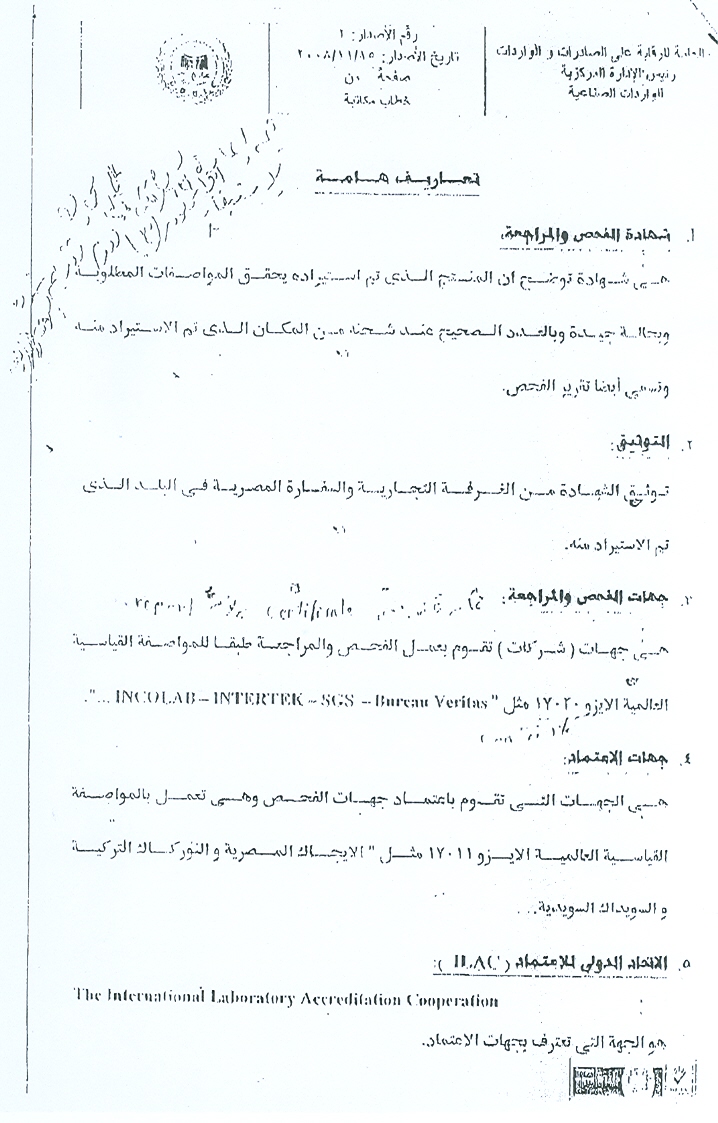 العامة للرقابة على الصادرات و الواردات
رئيس الإدارة المركزية
الواردات الصناعية
رقم الأصدار: ٢
تاريخ الأصدار: ٢٠٠٨/١١/١٥
صفحة من
خطاب مكاتبة
تعاريف هامة
١. شهادة الفحص والمراجعة:
هي شهادة توضح ان المنتج الذى تم استيراده يحقق المواصفات المطلوبة
وبحالة جيدة وبالعدد الصحيح عند شحنه من المكان الذى تم الاستيراد منه
وتسمى أيضا تقرير الفحص.
٢. التوثيق:
توثيق الشهادة من الغرفة التجارية والسفارة المصرية فى البلد الذى
تم الاستيراد منه.
٣. جهات الفحص والمراجعة:
certificate
هى جهات ( شركات ) تقوم بعمل الفحص والمراجعة طبقا للمواصفة القياسية
العالمية الايزو ١٧٠٢٠ مثل " INCOLAB – INTERTEK – SGS – Bureau Veritas ...".
٤. جهات الاعتماد:
هى الجهات التى تقوم باعتماد جهات الفحص وهى تعمل بالمواصفة
القياسية العالمية الايزو ١٧٠١١ مثل " الايجاك المصرية و التوركاك التركية
و السويداك السويدية...
٥. الاتحاد الدولي للاعتماد ( ILAC ):
The International Laboratory Accreditation Cooperation :
هو الجهة التي تعترف بجهات الاعتماد.